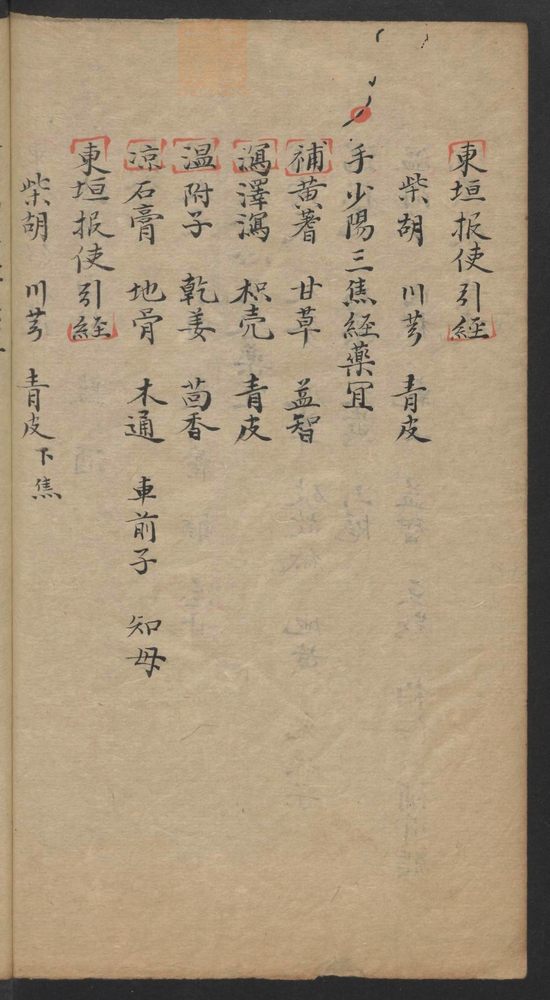 東垣报使引經
柴胡 川芎 青皮
手少陽三焦經藥宜
補黄蓍 甘草 益智
瀉澤瀉 枳壳 青皮
温附子 乾姜 茴香
凉石膏 地骨 木通 車前子 知母
東垣报使引經
柴胡 川芎 青皮下焦